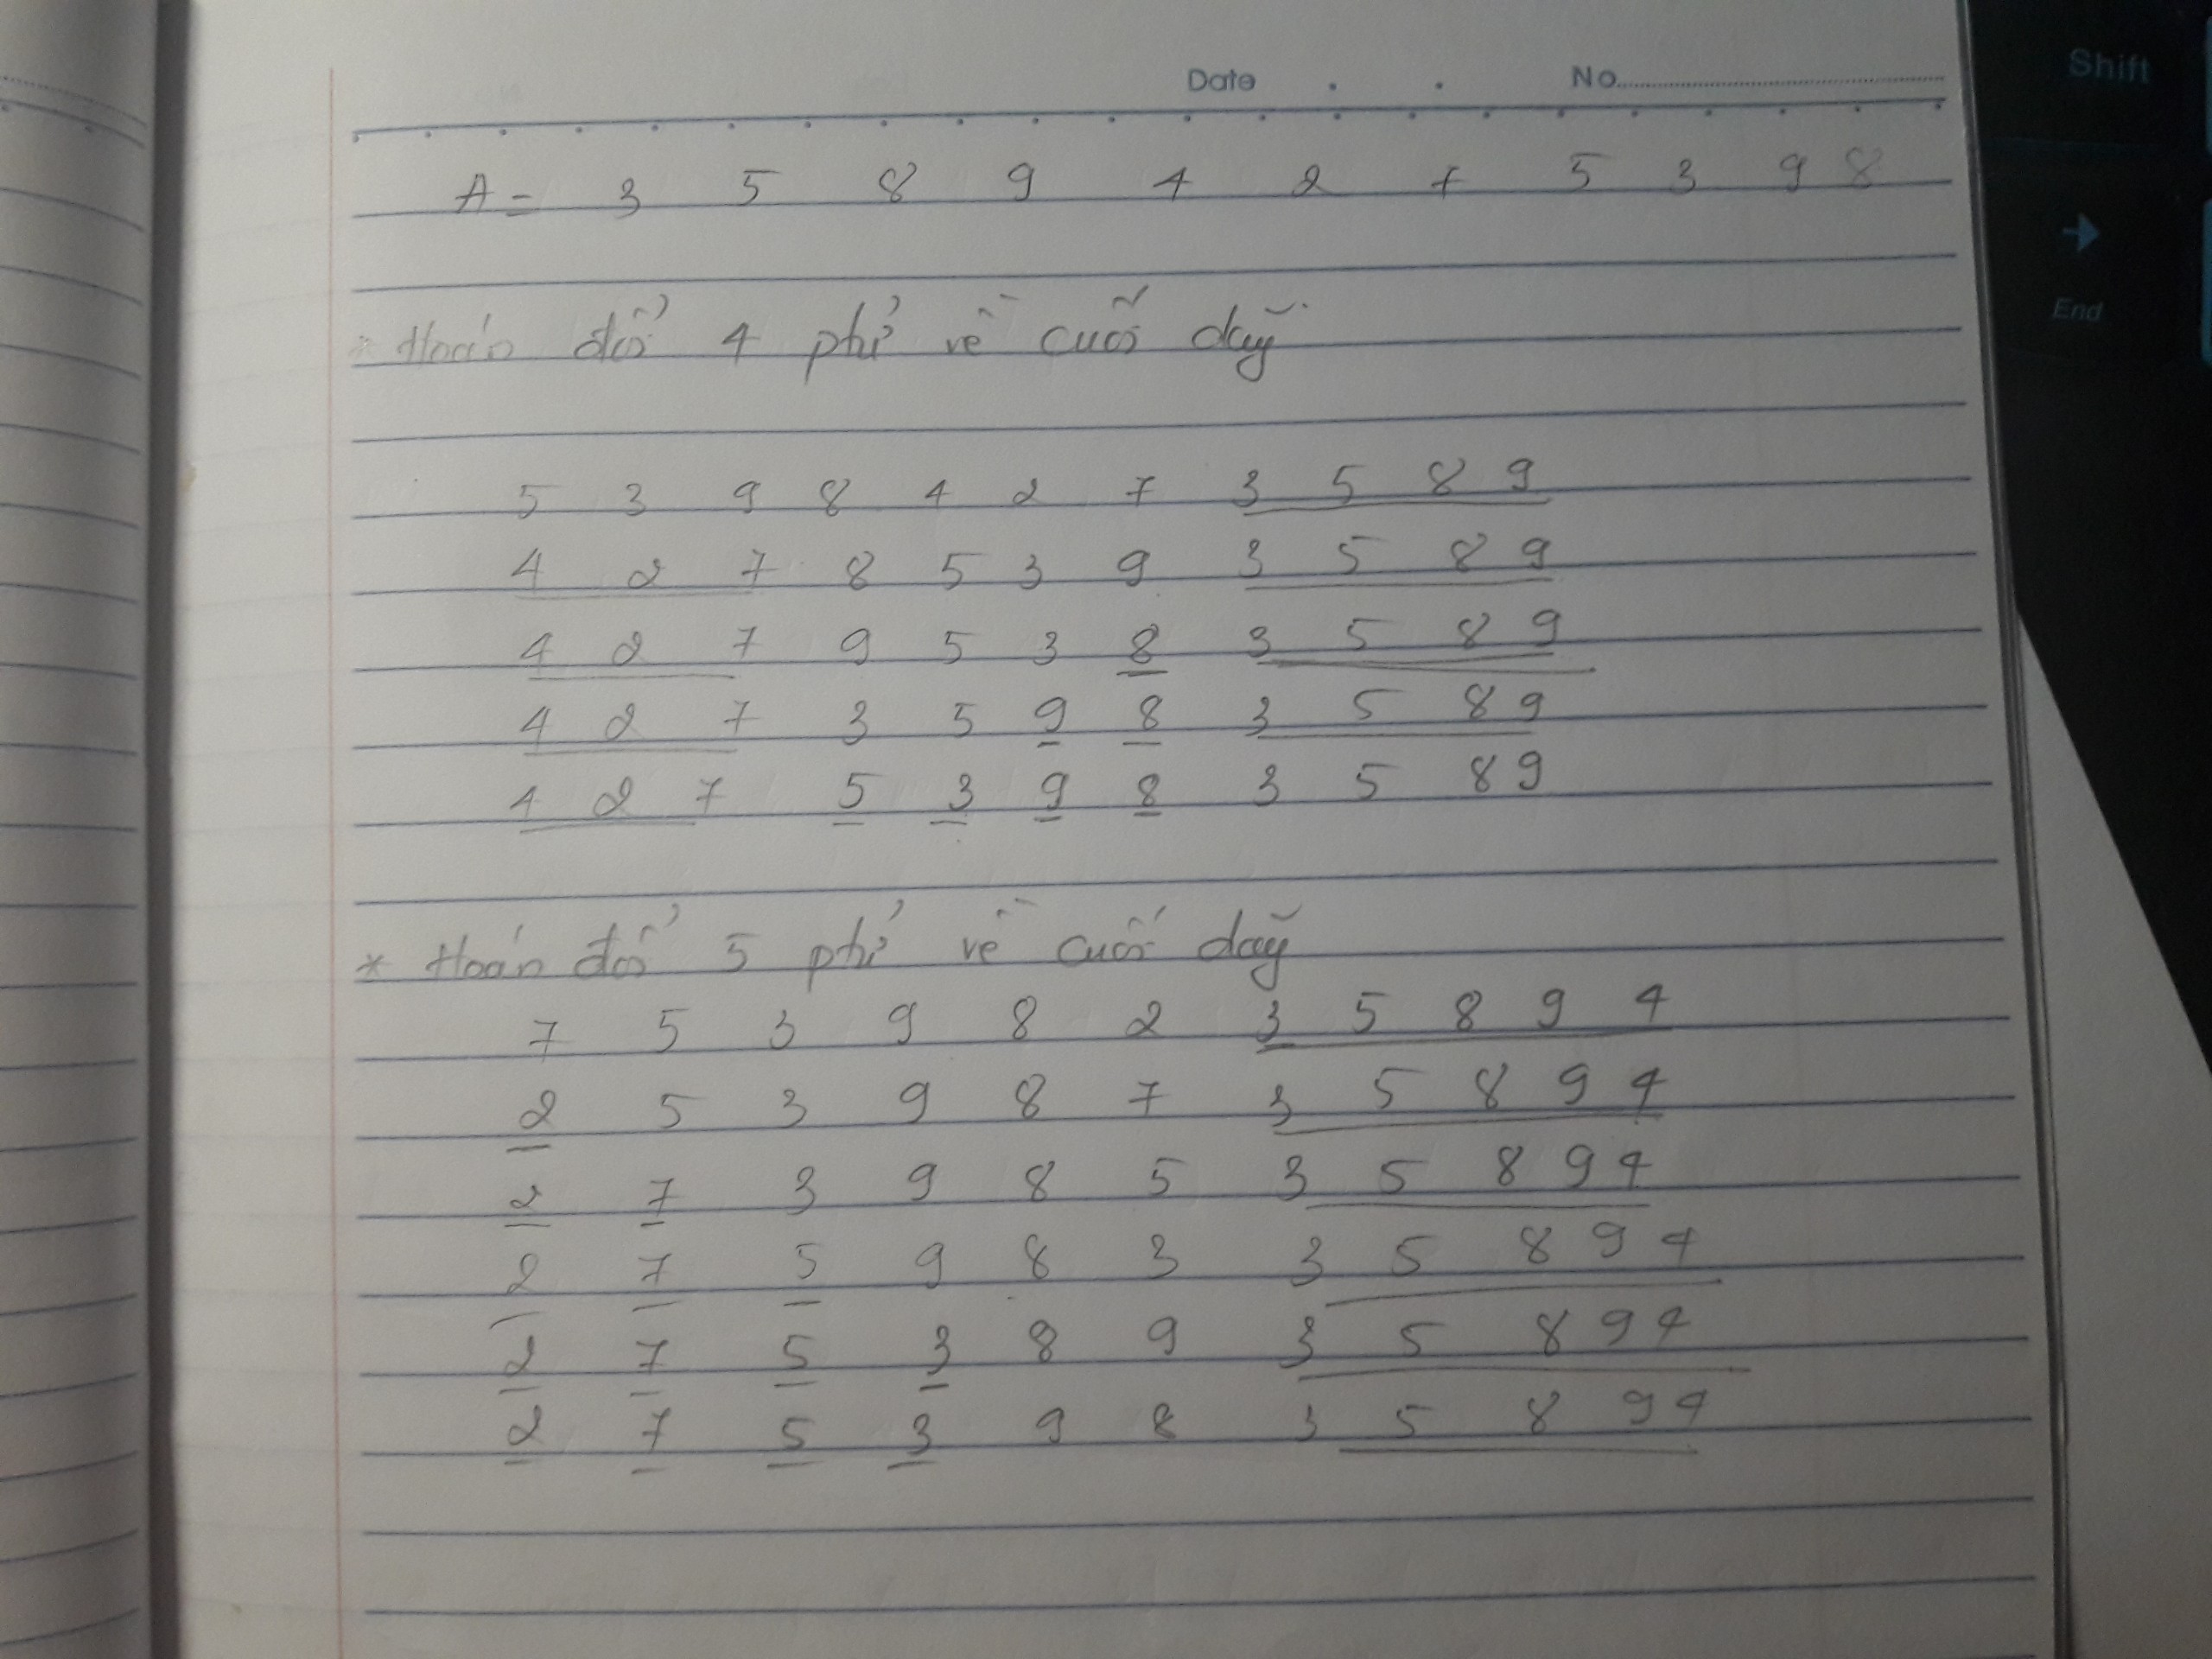 Date . . No
A = 3 5 8 9 4 2 7 5 3 9 8
* Hoán đổi 4 phtử về cuối dãy
5 3 9 8 4 2 7 3 5 8 9
4 2 7 8 5 3 9 3 5 8 9
4 2 7 9 5 3 8 3 5 8 9
4 2 7 3 5 9 8 3 5 8 9
4 2 7 5 3 9 8 3 5 8 9
* Hoán đổi 5 phtử về cuối dãy
7 5 3 9 8 2 3 5 8 9 4
2 5 3 9 8 7 3 5 8 9 4
2 7 3 9 8 5 3 5 8 9 4
2 7 5 9 8 3 3 5 8 9 4
2 7 5 3 8 9 3 5 8 9 4
2 7 5 3 9 8 3 5 8 9 4
Shift
→
End